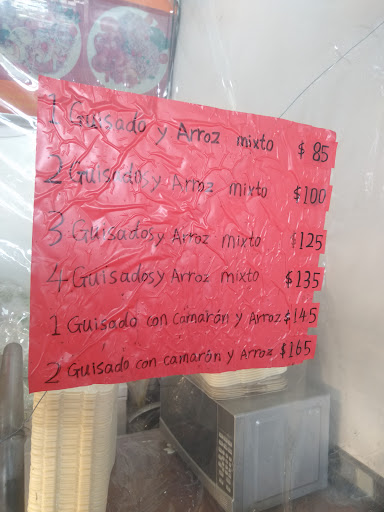 1 Guisado y Arroz mixto $85
2 Guisados y Arroz mixto $100
3 Guisados y Arroz mixto $125
4 Guisados y Arroz mixto $135
1 Guisado con camarón y Arroz $145
2 Guisado con camarón y Arroz $165